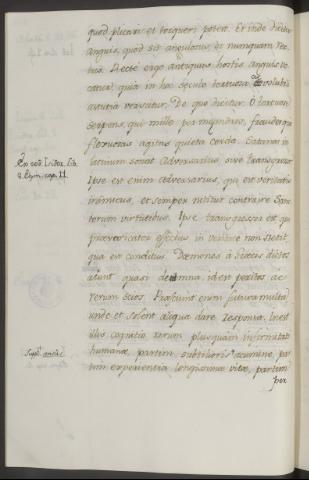 quod plicari et torqueri potest. Et inde dicitur
anguis, quod sit angulosus et numquam rec-
tus. Recte ergo antiquus hostis anguis vo-
catur quia in hoc seculo tortuosa volubili
astutia versatur. De quo dicitur O tortuose
serpens, qui mille per meandros, fraudesque
flexuosas agitas quieta corda. Satanas in
latinum sonat Adversarius, sive transgressor.
Ipse est enim adversarius, qui est veritatis
inimicus, et semper nititur contraire Sanc-
torum virtutibus. Ipse transgressor est qui
praevaricator effectus in veritate non stetit
qua est conditus. Daemones a Graecis dictos
aiunt quasi demnnia, idest peritos ac
rerum scios. Praesciunt enim futura multa
unde et solent aliqua dare responsa. Inest
illis cognitio rerum plusquam infirmitati
humanae, partim subtilioris acumine, par-
tim experientia longissimae vitae, partim
per
Ex eod. Isidor. lib.
8. Etym. cap. 11.